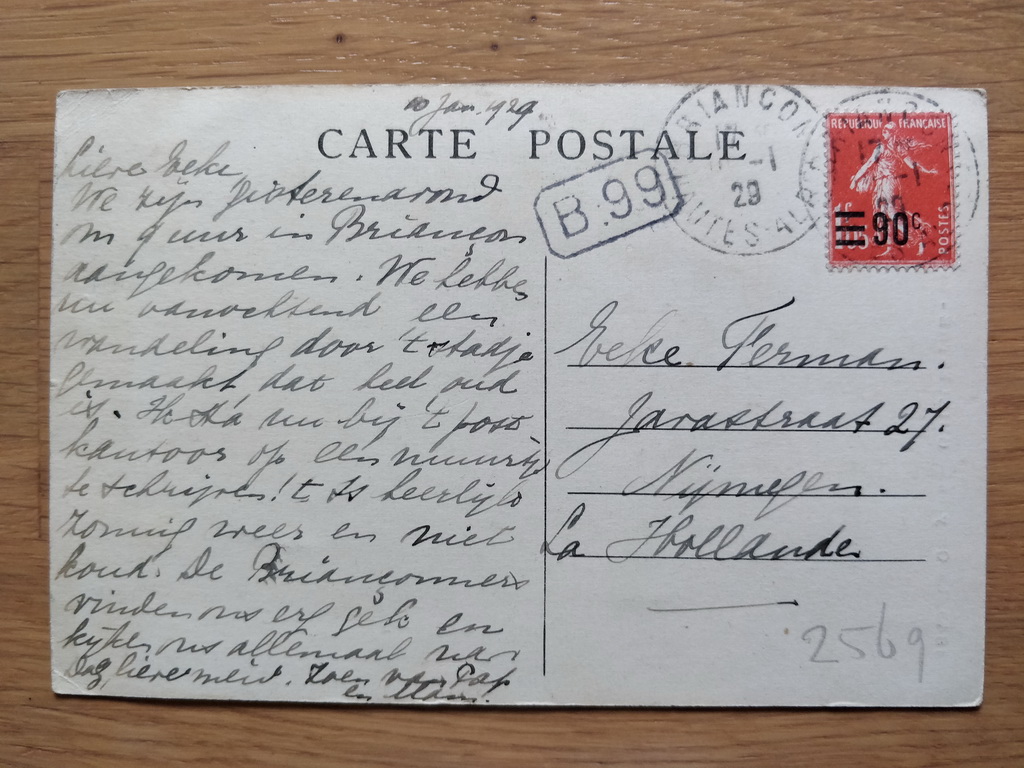 10 Jan. 1929
CARTE POSTALE
Lieve Eeke
We zijn gisterenavond
om 9 uur in Briançon
aangekomen. We hebben
nu vanochtend een
wandeling door 't stadje
gemaakt, dat heel oud
is. Ik sta nu bij 't post
kantoor op een muurtje
te schrijven! 't Is heerlijk
zonnig weer en niet
koud. De Briançonners
vinden ons erg gek en
kijken ons allemaal na.
Dag, lieve meid. Zoen van Pap
en Mam.
B.99
BRIANÇON
-1
29
HAUTES-ALPES
17
-1
29
REPUBLIQUE FRANÇAISE
90c
POSTES
Eeke Ferman.
Javastraat 27.
Nijmegen.
La Hollande
2569